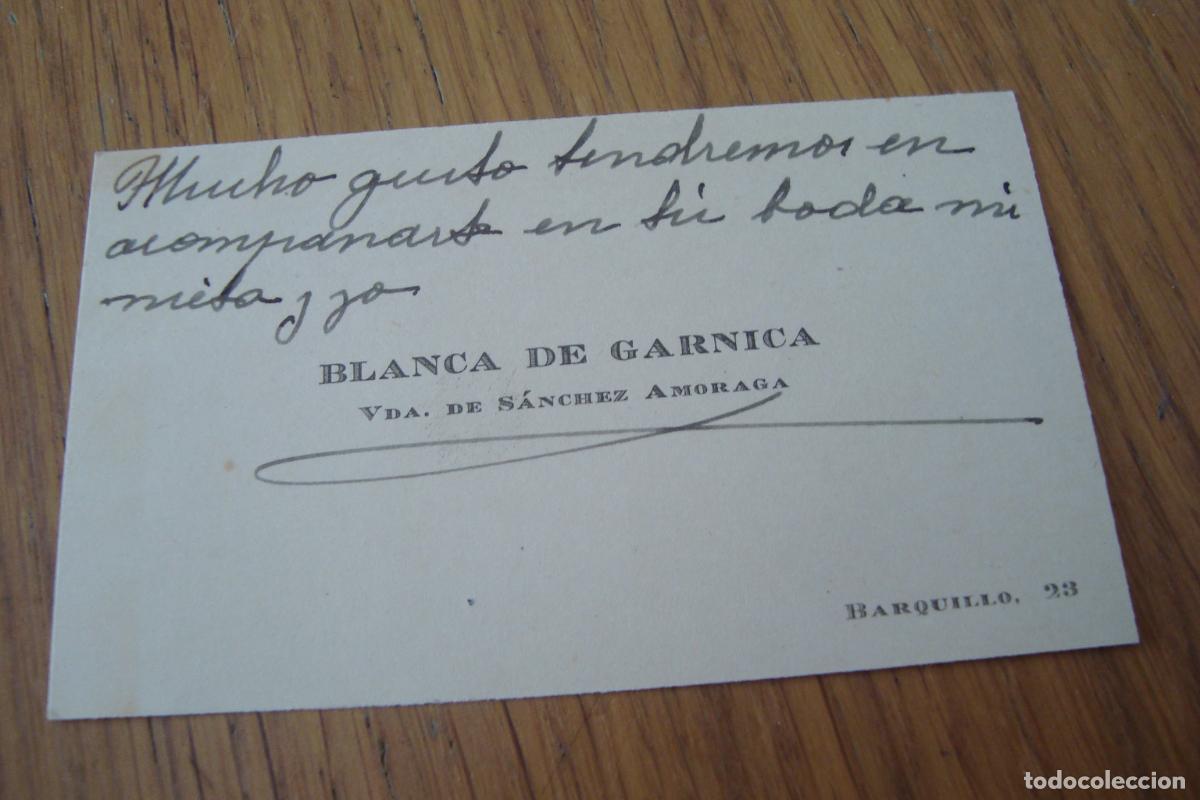 Mucho gusto tendremos en
acompanarte en tú boda mi
nieta y yo
BLANCA DE GARNICA
VDA. DE SÁNCHEZ AMORAGA
BARQUILLO, 23
todocoleccion